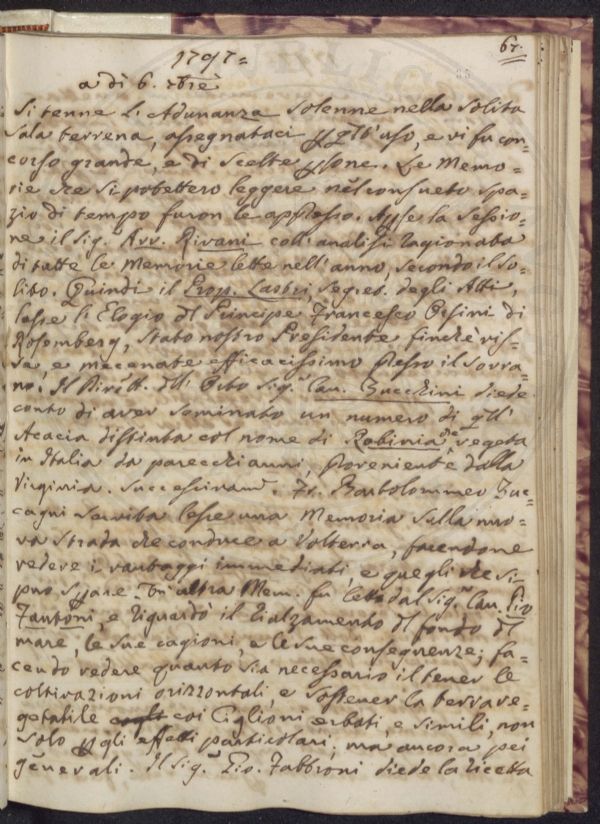 67.
1797=
a dì 6. 7bre
Si tenne l'Adunanza solenne nella solita
Sala terrena, assegnataci p qll'uso, e vi fu con=
corso grande, e di scelte psone. Le Memo=
rie che si potettero leggere nel consueto spa=
zio di tempo furon le appresso. Apse la Sessio=
ne il Sig. Avv. Rivani coll'analisi ragionata
di tutte le Memorie lette nell'anno, secondo il so=
lito. Quindi il Prop. Lastri, Seg. degli Atti,
lesse l'Elogio del Principe Francesco Orsini di
Rosemberg, stato nostro Presidente finchè vis=
se, e mecenate efficacissimo presso il Sovra=
no. Il Dirett. dll'Orto Sig. Cav. Zucchini diede
conto di aver seminato un numero di qll'
Acacia distinta col nome di Robinia che vegeta
in Italia da parecchi anni, proveniente dalla
Virginia. Successivam. Fr. Bartolommeo Zuc=
cagni lesse una Memoria sulla nuo=
va strada che conduce a Volterra, facendone
vedere i vantaggi immediati, e quegli che si
può sperare. Un'altra Mem. fu letta dal Sig. Cav. Pio
Fantoni, e riguardò il rialzamento dl fondo dl
mare, le sue cagioni, e le sue conseguenze; fa=
cendo vedere quanto sia necessario il tener le
coltivazioni orizzontali, e sostener la terra ve=
getabile coi Ciglioni erbati, e simili, non
solo p gli effetti particolari, ma ancora pei
generali. Il Sig. Gio. Fabbroni diede la ricetta